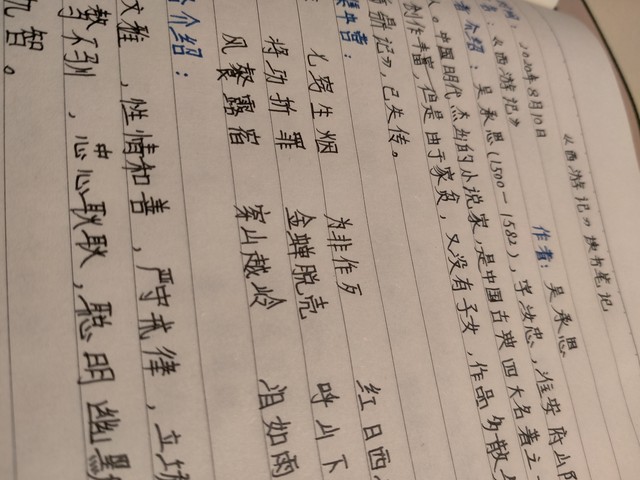 《西游记》读书笔记
2020年8月10日 作者：吴承恩
《西游记》
介绍：吴承恩（1500-1582），字汝忠，淮安府山阳
人。中国明代杰出的小说家，是中国古典四大名著之一
创作丰富，但是由于家贫，又没有子女，作品多散
鼎记》，已失传。
七窍生烟 为非作歹 红日西
将功折罪 金蝉脱壳 呼山下
风餐露宿 穿山越岭 泪如雨
介绍：
文雅，性情和善，严守戒律，立场
忠心耿耿，聪明幽默